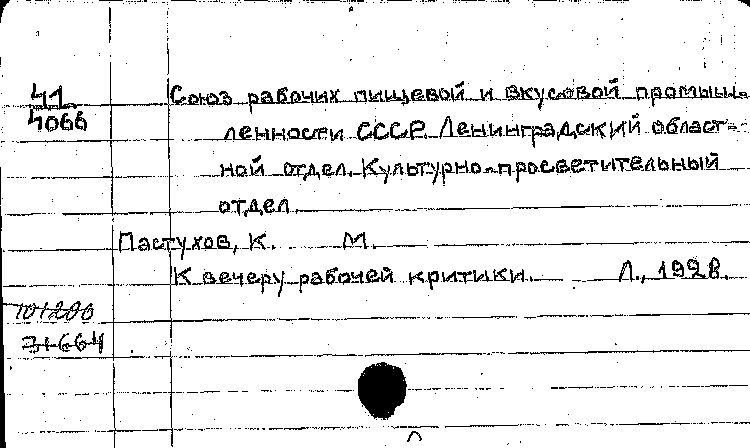 41
4066
Союз рабочих пищевой и вкусовой промыш-
ленности СССР. Ленинградский област-
ной отдел. Культурно-просветительный
отдел.
Пастухов, К. М.
К вечеру рабочей критики. Л., 1928.
101200
31664